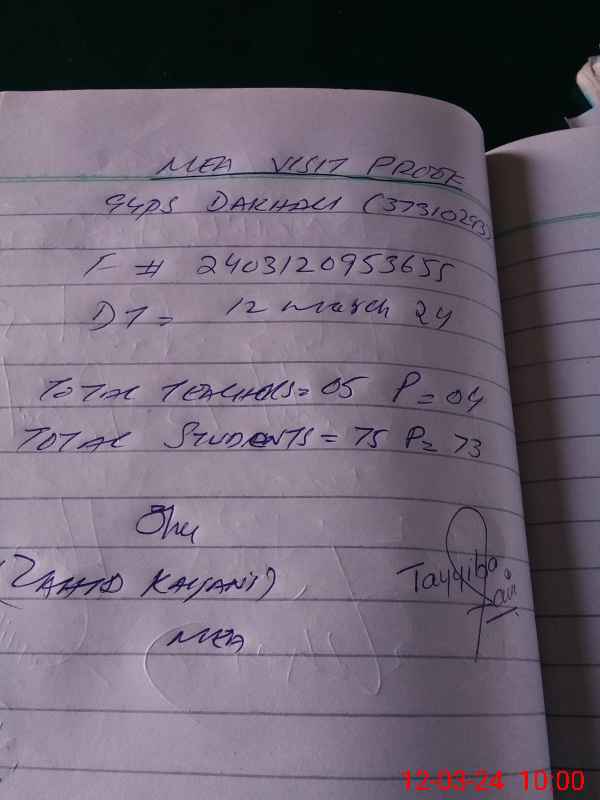 MEA VISIT PROOF
GGPS DAKHALI (37310293)
F # 2403120953655
DT = 12 March 24
TOTAL TEACHERS = 05 P = 04
TOTAL STUDENTS = 75 P = 73
(ZAHID KAYANI)
Tayyiba
MEA
12-03-24 10:00